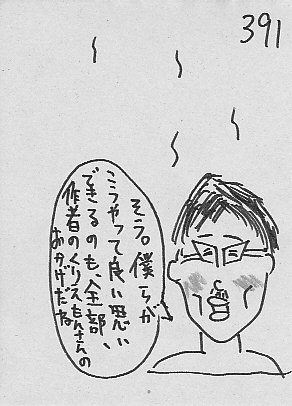 391
そう。僕らが
こうやって良い思い
できるのも、全部、
作者のくりえもんさんの
おかげだね